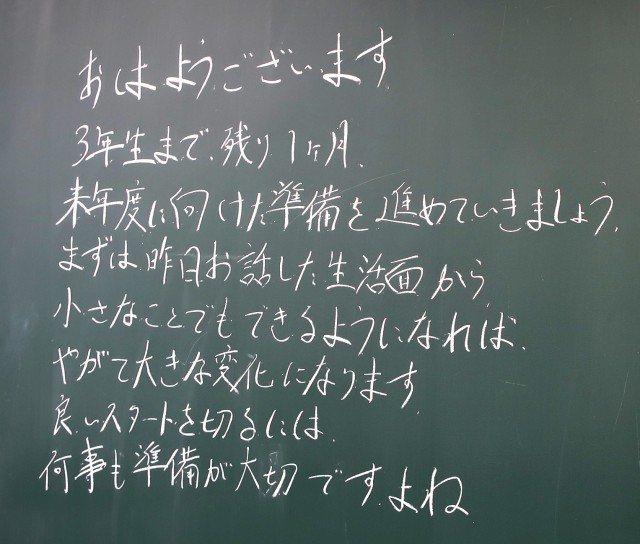 おはようございます
3年生まで、残り1ヶ月、
来年度に向けた準備を進めていきましょう。
まずは、昨日お話した生活面から
小さなことでもできるようになれば、
やがて大きな変化になります
良いスタートを切るには、
何事も準備が大切です。よね